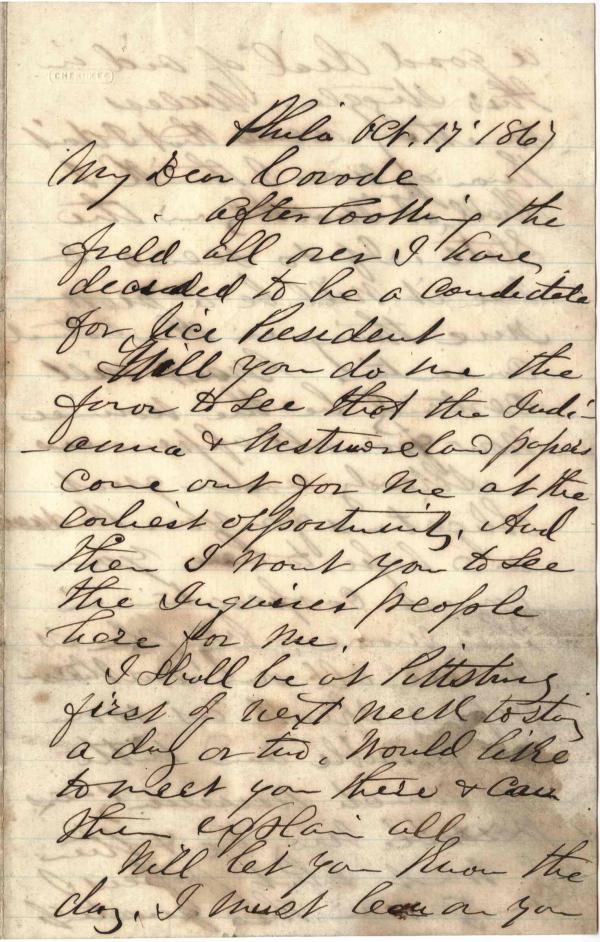 Phila Oct. 17 1867
My Dear Covode
After looking the
field all over I have
decided to be a candidate
for Vice President
Will you do me the
favor to see that the Indi-
-anna & Westmoreland papers
come out for me at the
earliest opportunity. And
then I want you to see
the Inquirer people
here for me.
I shall be at Pittsburg
first of next week to stay
a day or two. Would like
to meet you there & can
then explain all
Will let you know the
day. I must lean on you